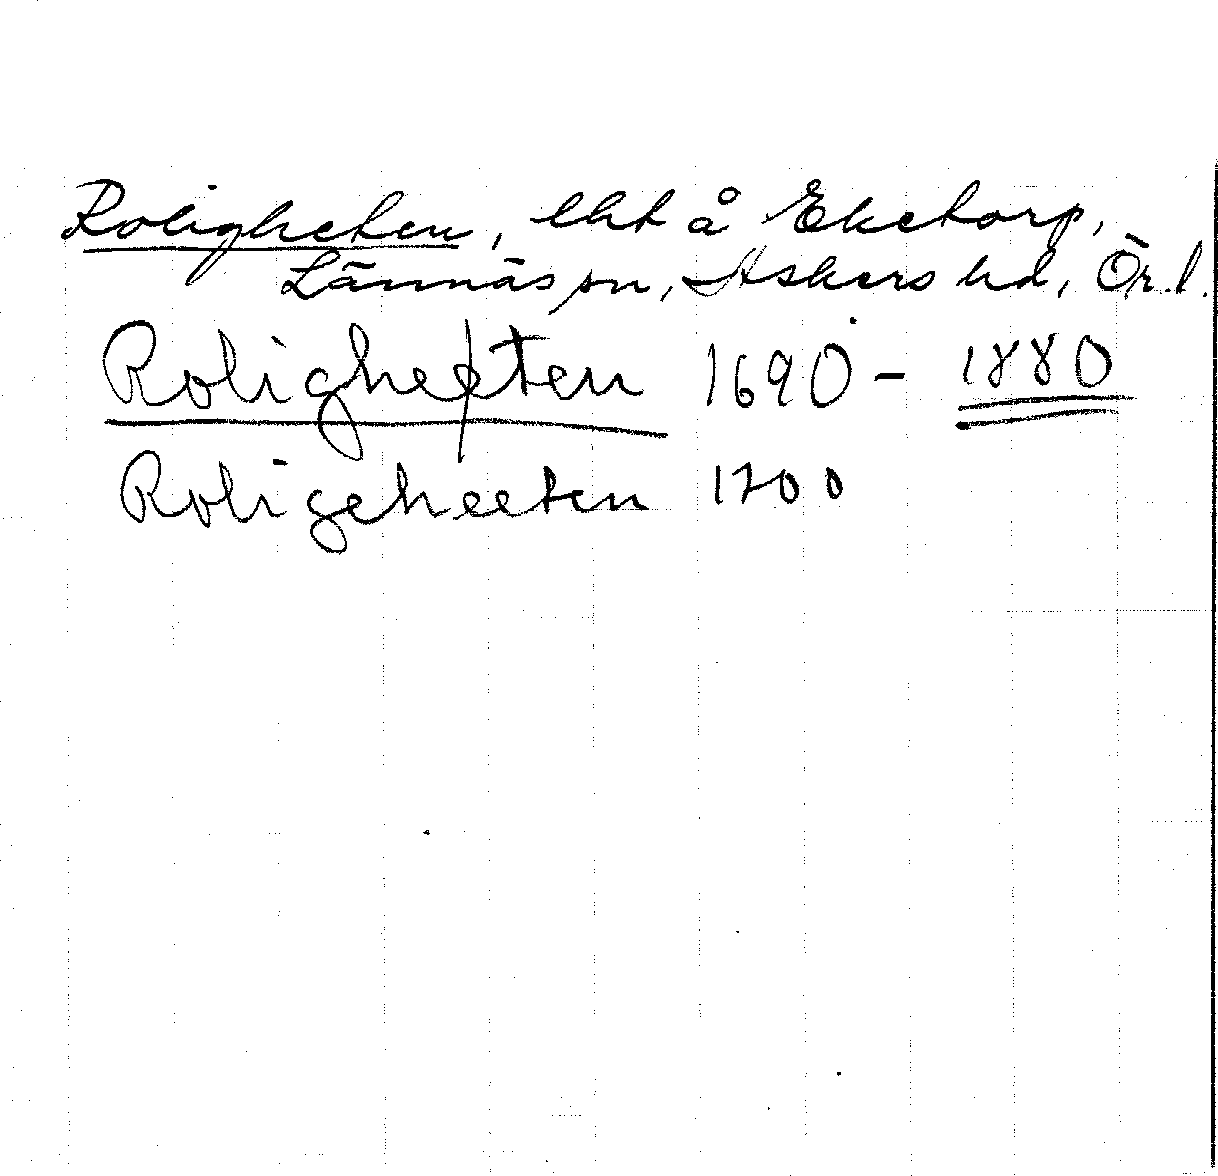 Roligheten, lht å Eketorp,
Lännäs sn, Askers hd, Ör. l.
Roligheten 1690 - 1880
Roligeheeten 1700